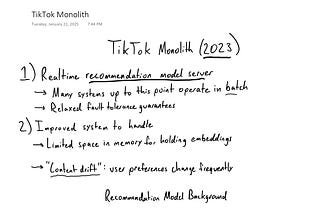 TikTok Monolith
Tuesday, January 21, 2025 7:44 PM
TikTok Monolith (2023)
1) Realtime recommendation model server
→ Many systems up to this point operate in batch
→ Relaxed fault tolerance guarantees
2) Improved system to handle
→ Limited space in memory for holding embeddings
→ "Content drift": user preferences change frequently
Recommendation Model Background